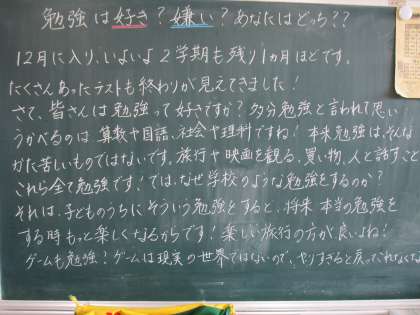 勉強は好き?嫌い?あなたはどっち??
12月に入り、いよいよ2学期も残り1ヵ月ほどです。
たくさんあったテストも終わりが見えてきました!
さて、皆さんは勉強って好きですか?多分勉強と言われて思い
うかべるのは算数や国語、社会や理科ですね!本来勉強は、そんな
かた苦しいものではないです。旅行や映画を観る、買い物、人と話すこと
これら全て勉強です!では、なぜ学校のような勉強をするのか?
それは、子どものうちにそういう勉強をすると、将来本当の勉強を
する時もっと楽しくなるからです!楽しい旅行の方が良いよね!
ゲームも勉強!ゲームは現実の世界ではないので、やりすぎると戻ってこれなくな